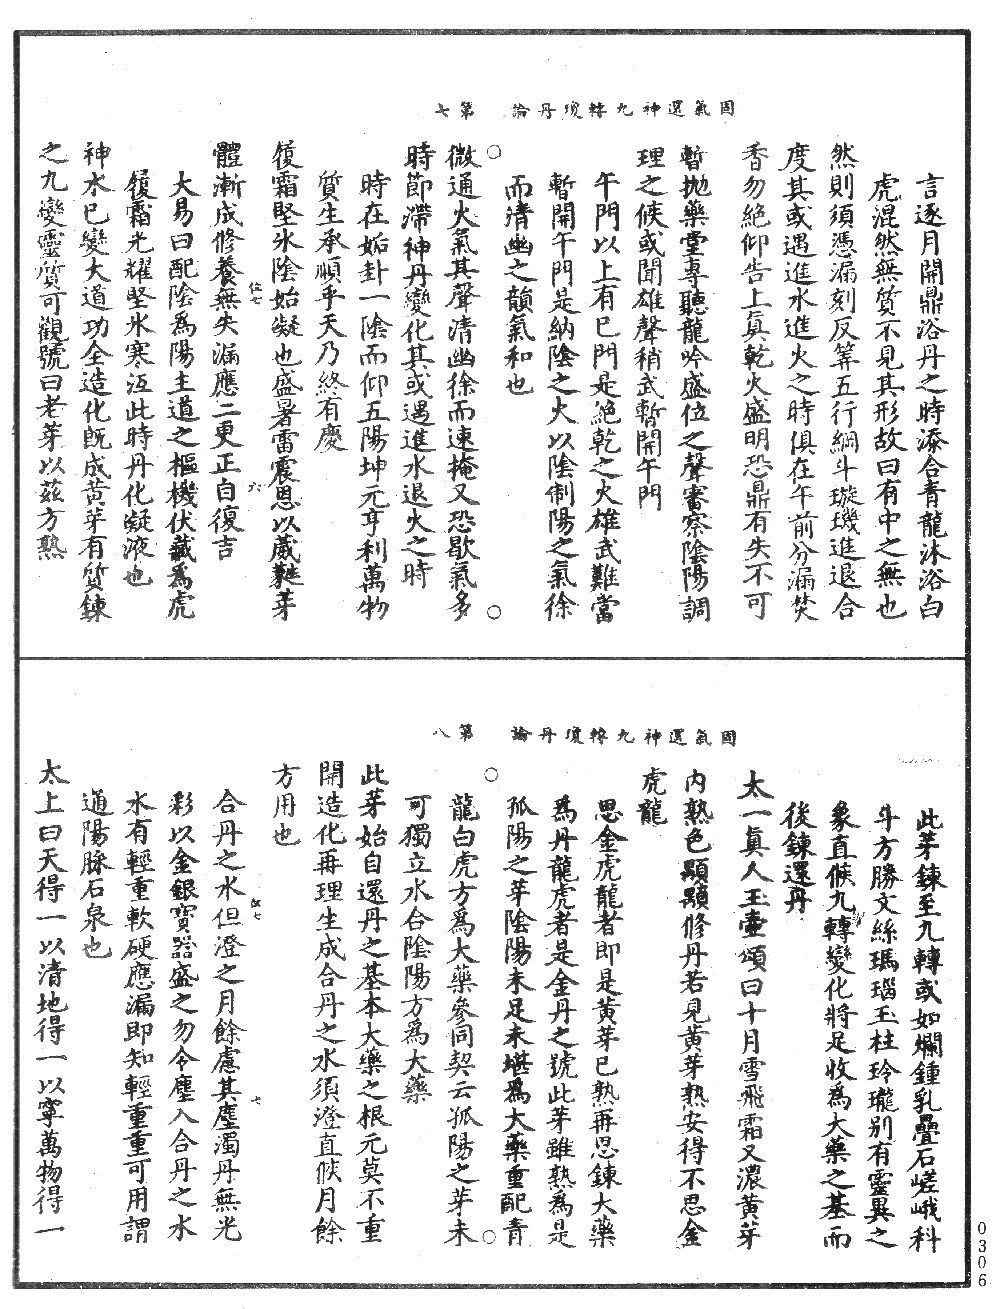 固氣還神九轉瓊丹論　第七
言逐月開鼎浴丹之時添合青龍沐浴白
虎混然無質不見其形故曰有中之無也
然則須憑漏刻反筭五行綱斗璇璣進退合
度其或遇進水進火之時俱在午前分漏焚
香勿絕仰告上真乾火盛明恐鼎有失不可
暫拋藥堂專聽龍吟盛位之聲審察陰陽調
理之候或聞雄聲稍武暫開午門
午門以上有巳門是絕乾之火雄武難當
暫開午門是納陰之火以陰制陽之氣徐
而清幽之韻氣和也
微通火氣其聲清幽徐而速掩又恐歇氣多
時節滯神丹變化其或遇進水退火之時
時在姤卦一陰而仰五陽坤元亨利萬物
質生承順乎天乃終有慶
履霜堅氷陰始凝也盛暑雷震恩以葳蕤芽
體漸成修養無失漏應二更正白復吉
伍七　六
大易曰配陰為陽主道之樞機伏藏為虎
履霜光耀堅氷寒沍此時丹化凝液也
神水巳變大道功全造化旣成黃芽有質鍊
之九變靈質可觀號曰老芽以茲方熟
固氣還神九轉瓊丹論　第八
此芽鍊至九轉或如爛鍾乳疊石嵯峨科
斗方勝文絲瑪瑙玉柱玲瓏别有靈異之
象直候九轉變化將足收為大藥之基而
後鍊還丹
太一真人玉壷頌曰十月雪飛霜又濃黃芽
內熟色顆顆修丹若見黃芽熟安得不思金
虎龍
思金虎龍者即是黃芽巳熟再思鍊大藥
為丹龍虎者是金丹之號此芽雖熟為是
孤陽之芽陰陽未足未堪為大藥重配青
龍白虎方為大藥參同契云孤陽之芽未
可獨立水合陰陽方為大藥
此芽始自還丹之基本大藥之根元莫不重
開造化再理生成合丹之水須澄直候月餘
方用也
伍七　七
合丹之水但澄之月餘慮其塵濁丹無光
彩以金銀寶器盛之勿令塵入合丹之水
水有輕重軟硬應漏即知輕重重可用謂
通陽脉石泉也
太上曰天得一以清地得一以寧萬物得一
0306